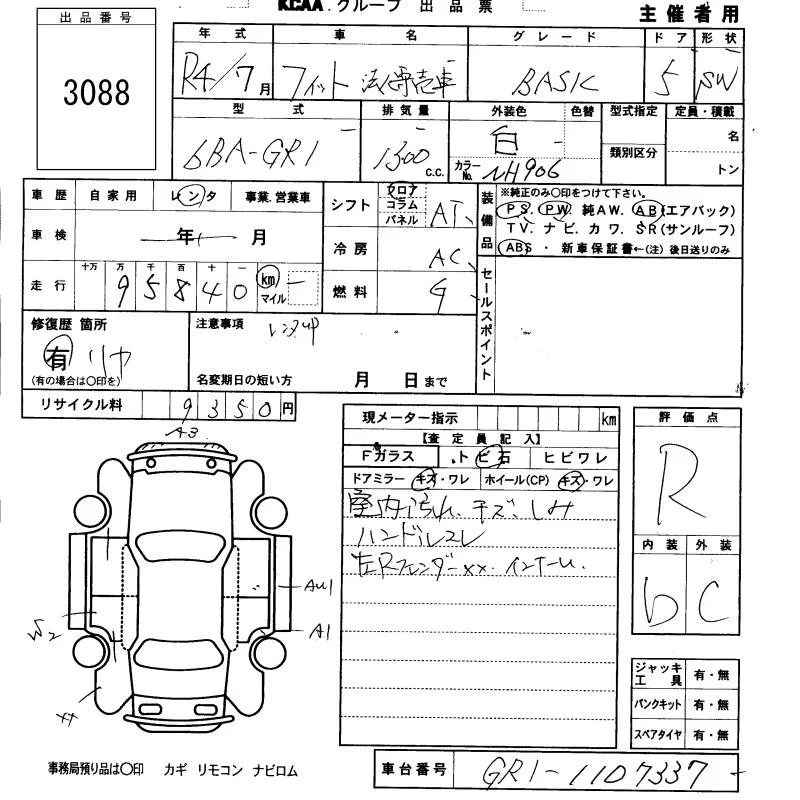 KCAA.グループ 出品票
主催者用
出品番号
3088
年式 車名 グレード ドア 形状
R4/7月 フィット 法専売車 BASIC 5 SW
型式 排気量 外装色 色替 型式指定 定員・積載
6BA-GR1 1300 c.c. 白 類別区分 名
カラーNo. NH906 トン
車歴 自家用 レンタ 事業.営業車
車検 年 月
走行 十万 万 千 百 十 一
95840 km マイル
シフト フロア コラム パネル AT
冷房 AC
燃料 G
装備品
※純正のみ〇印をつけて下さい。
PS. PW. 純AW. AB(エアバック)
TV. ナビ. カワ. SR(サンルーフ)
ABS ・ 新車保証書←(注) 後日送りのみ
セールスポイント
修復歴 箇所
有 リヤ
(有の場合は〇印を)
注意事項
名変期日の短い方 月 日まで
リサイクル料 9350円
現メーター指示 km
【査定員記入】
Fガラス ・トビ石 ヒビワレ
ドアミラー キズ・ワレ ホイール(CP) キズ・ワレ
室内汚れ、キズ、しみ
ハンドルスレ
左Rフェンダーxx. インナーU.
評価点
R
内装 外装
D C
A3
AU1
A1
W2
xx
ジャッキ工具 有・無
パンクキット 有・無
スペアタイヤ 有・無
事務局預り品は〇印 カギ リモコン ナビロム
車台番号 GR1-1107337